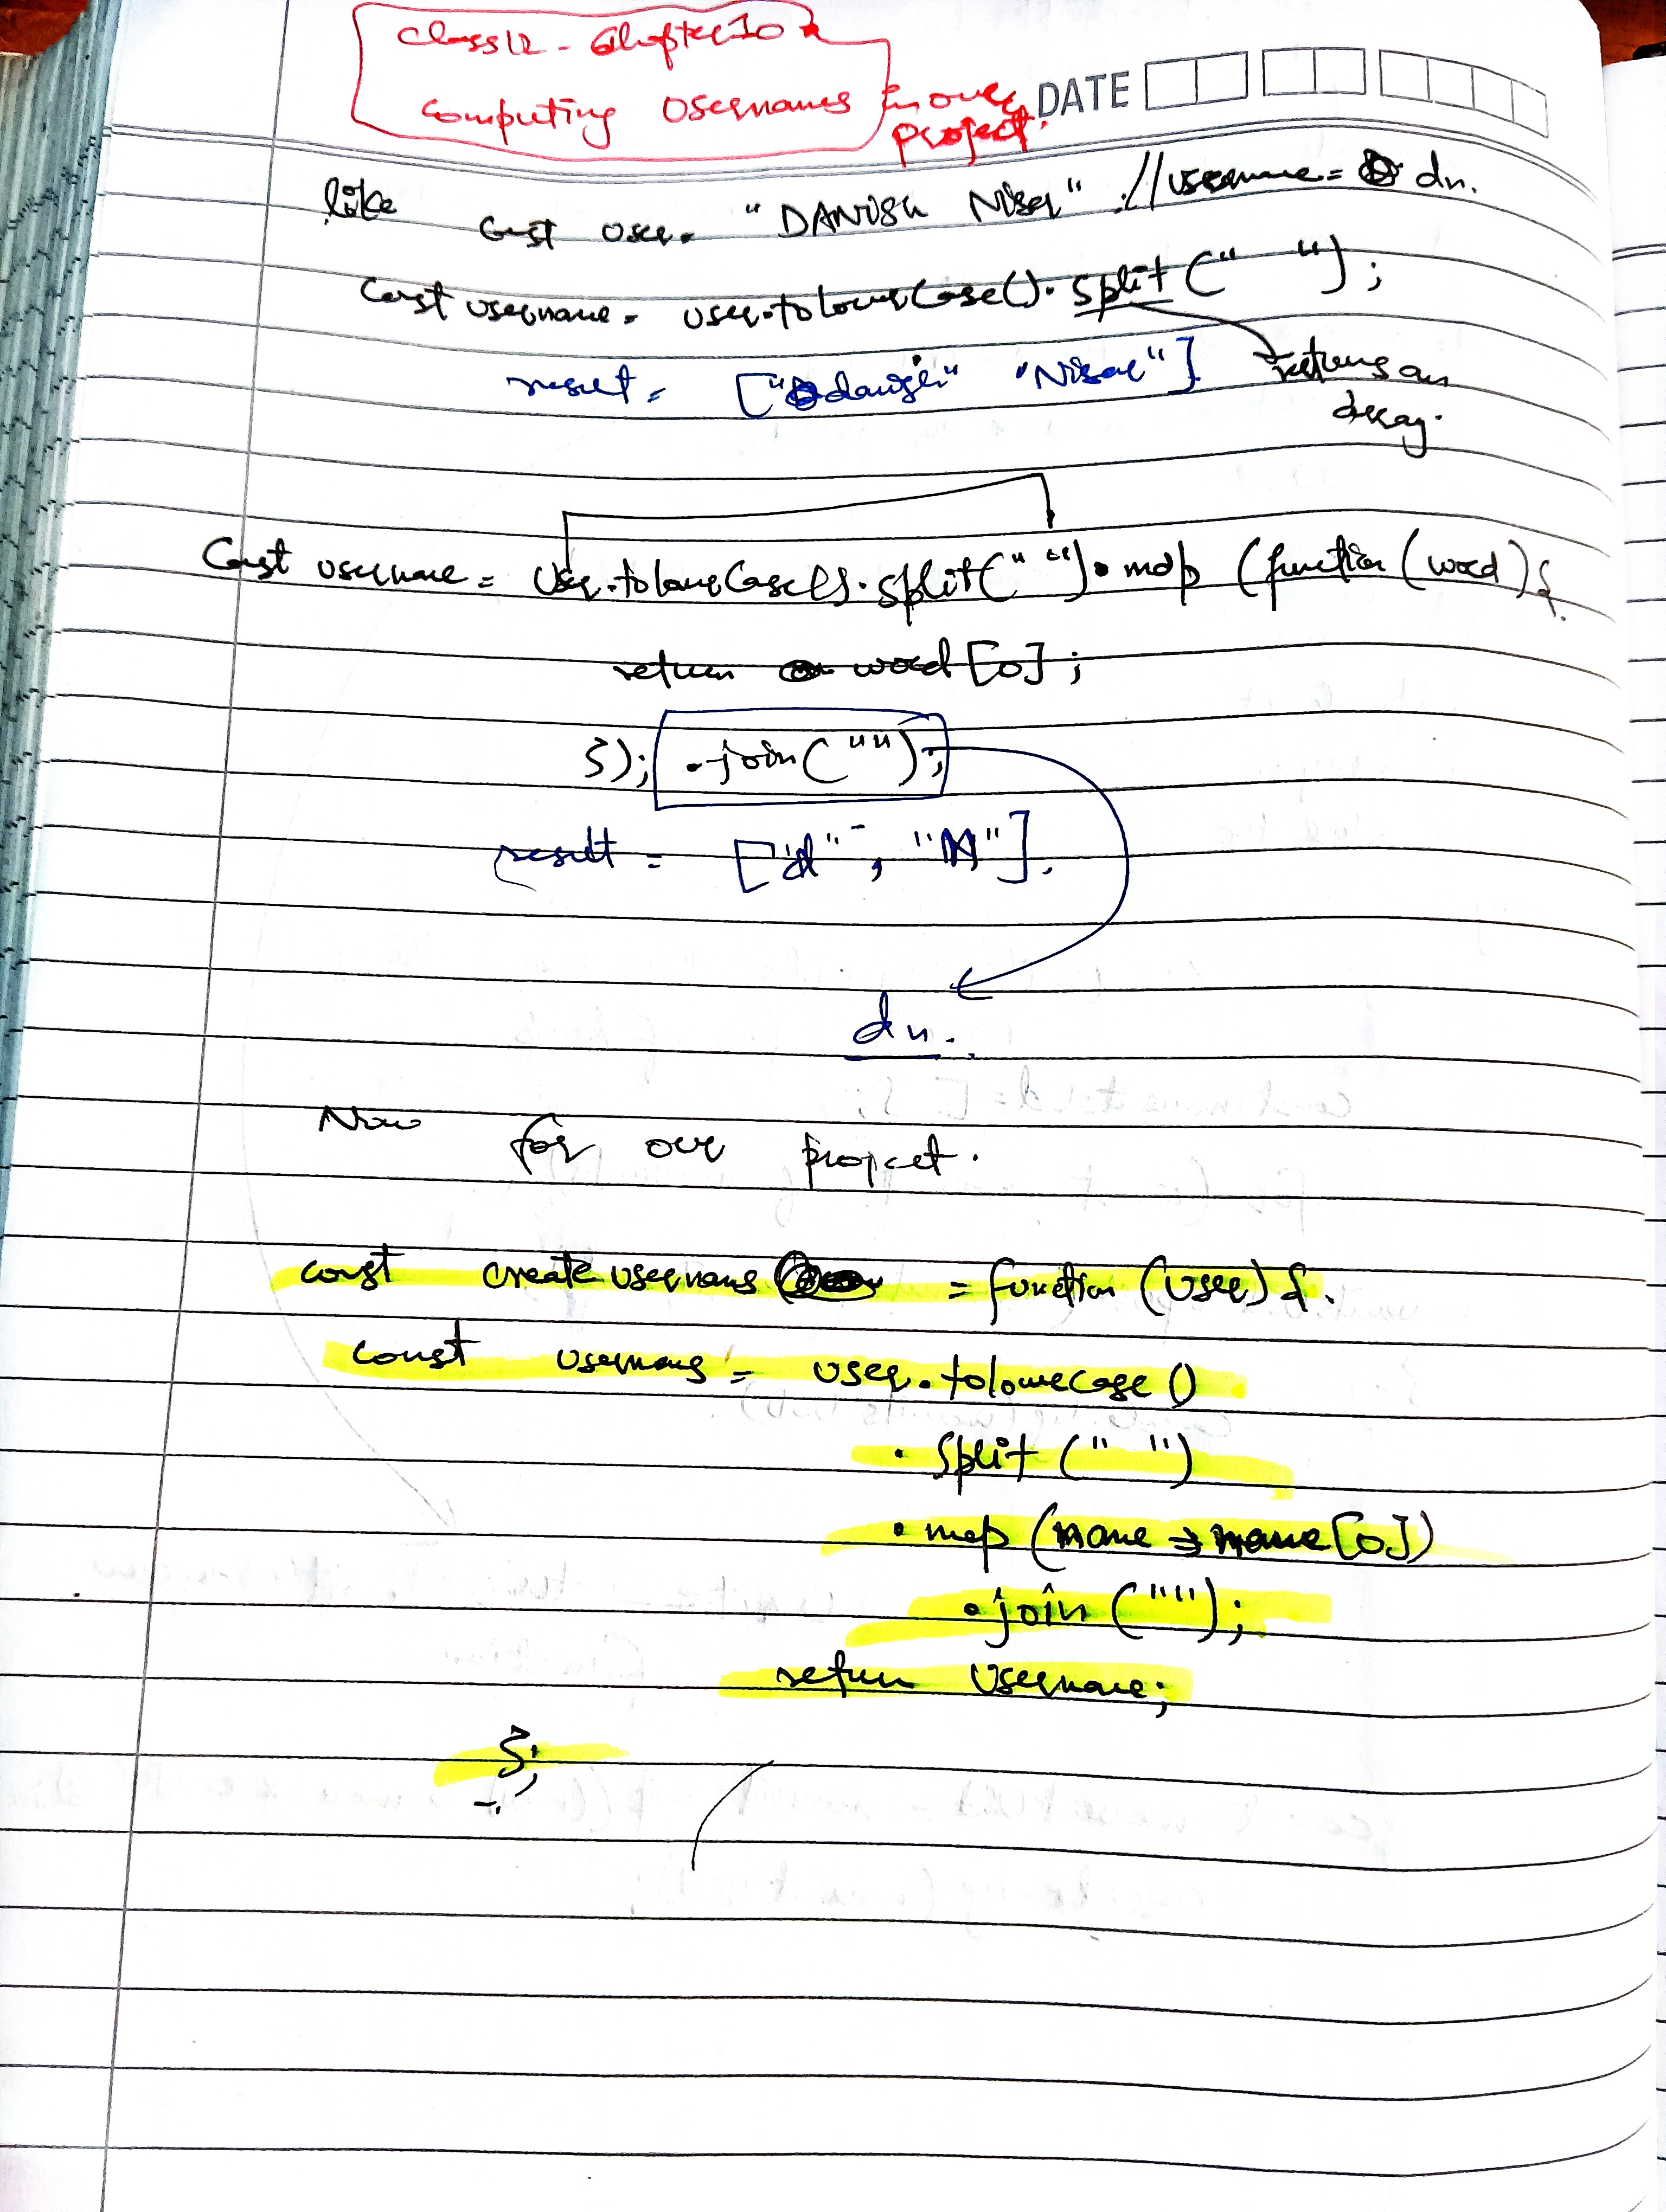 Class 12 - Chapter 10
Computing Usernames in our project.
DATE
like const user = "DANISH Nisar" // username = dn.
const username = user.toLowerCase().split(" ");
result = ["danish" "Nisar"] returns an
array.
Const username = User.toLowerCase().split(" ").map (function (word) {
return word [0];
}); .join ("");
result = ["d", "N"].
dn.
Now for our project.
const create usernams = function (user) {.
const usernams = user.tolowecase ()
.split (" ")
.map (name → name [0])
.join ("");
return Username;
};